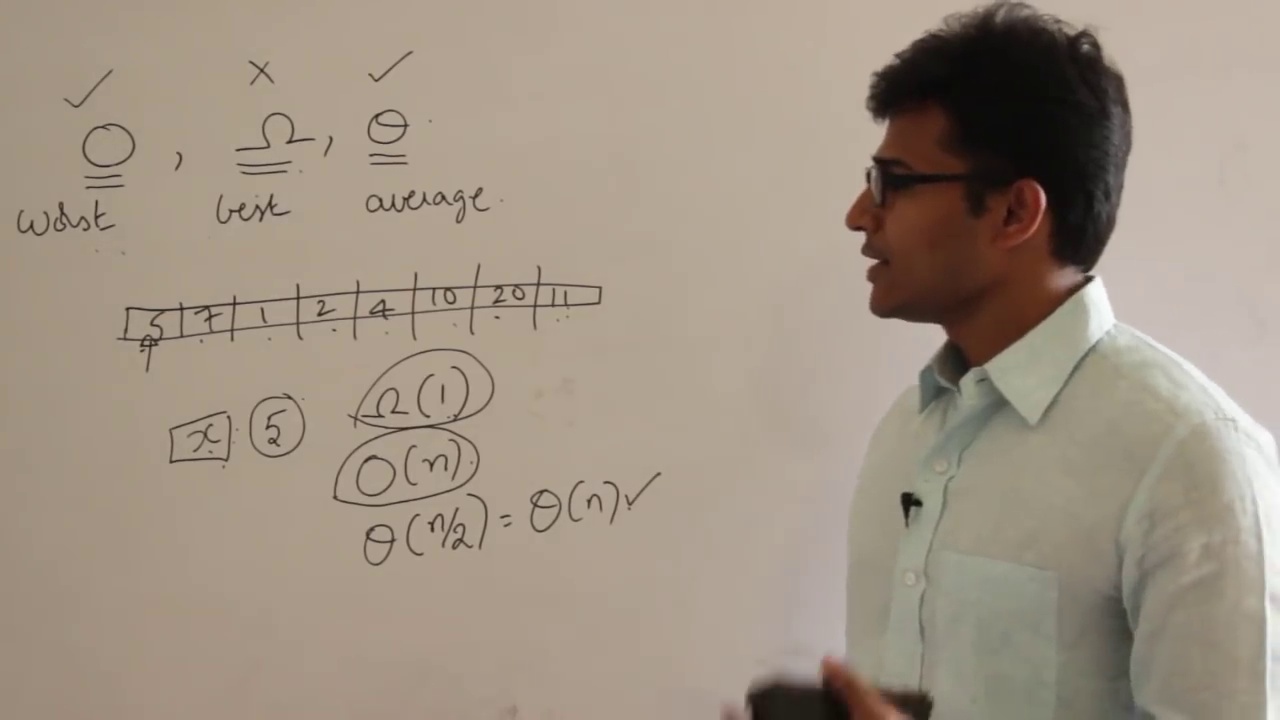 ✓ × ✓
O , Ω , θ
worst best average.
5 | 7 | 1 | 2 | 4 | 10 | 20 | 11
x : 5
Ω(1)
O(n)
θ(n/2) = θ(n) ✓